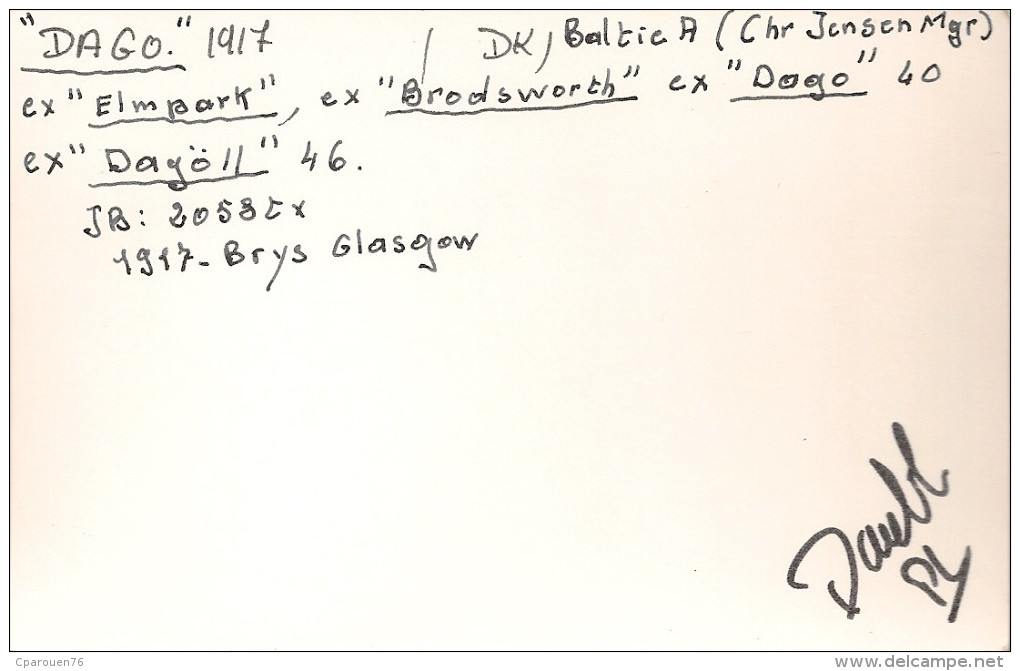 "DAGO." 1917 / DK, Baltic A (Chr Jensen Mgr)
ex "Elmpark", ex "Brodsworth" ex "Dago" 40
ex "Dagö II" 46.
JB: 2058tx
1917- Brys Glasgow
Cparouen76
www.delcampe.net